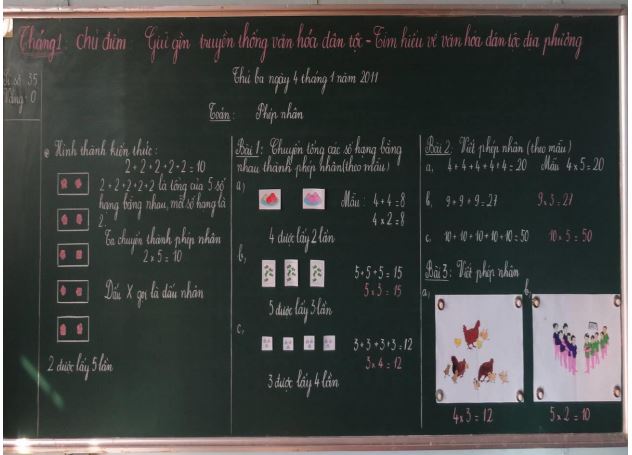 Tháng 1: Chủ điểm: Giữ gìn truyền thống văn hóa dân tộc - Tìm hiểu về văn hóa dân tộc địa phương
Sĩ số: 35
Vắng: 0
Thứ ba ngày 4 tháng 1 năm 2011
Toán: Phép nhân
Hình thành kiến thức:
2+2+2+2+2=10
2+2+2+2+2 là tổng của 5 số
hạng bằng nhau, mỗi số hạng là
2.
Ta chuyển thành phép nhân
2 x 5 = 10
Dấu X gọi là dấu nhân
2 được lấy 5 lần
Bài 1: Chuyển tổng các số hạng bằng
nhau thành phép nhân (theo mẫu)
a)
Mẫu: 4+4=8
4 x 2 = 8
4 được lấy 2 lần
b,
5+5+5=15
5 x 3 = 15
5 được lấy 3 lần
c,
3+3+3+3=12
3 x 4 = 12
3 được lấy 4 lần
Bài 2: Viết phép nhân (theo mẫu)
a, 4+4+4+4+4=20 Mẫu 4 x 5 = 20
b, 9+9+9=27 9 x 3 = 27
c, 10+10+10+10+10=50 10 x 5 = 50
Bài 3: Viết phép nhân
a, b,
4 x 3 = 12 5 x 2 = 10